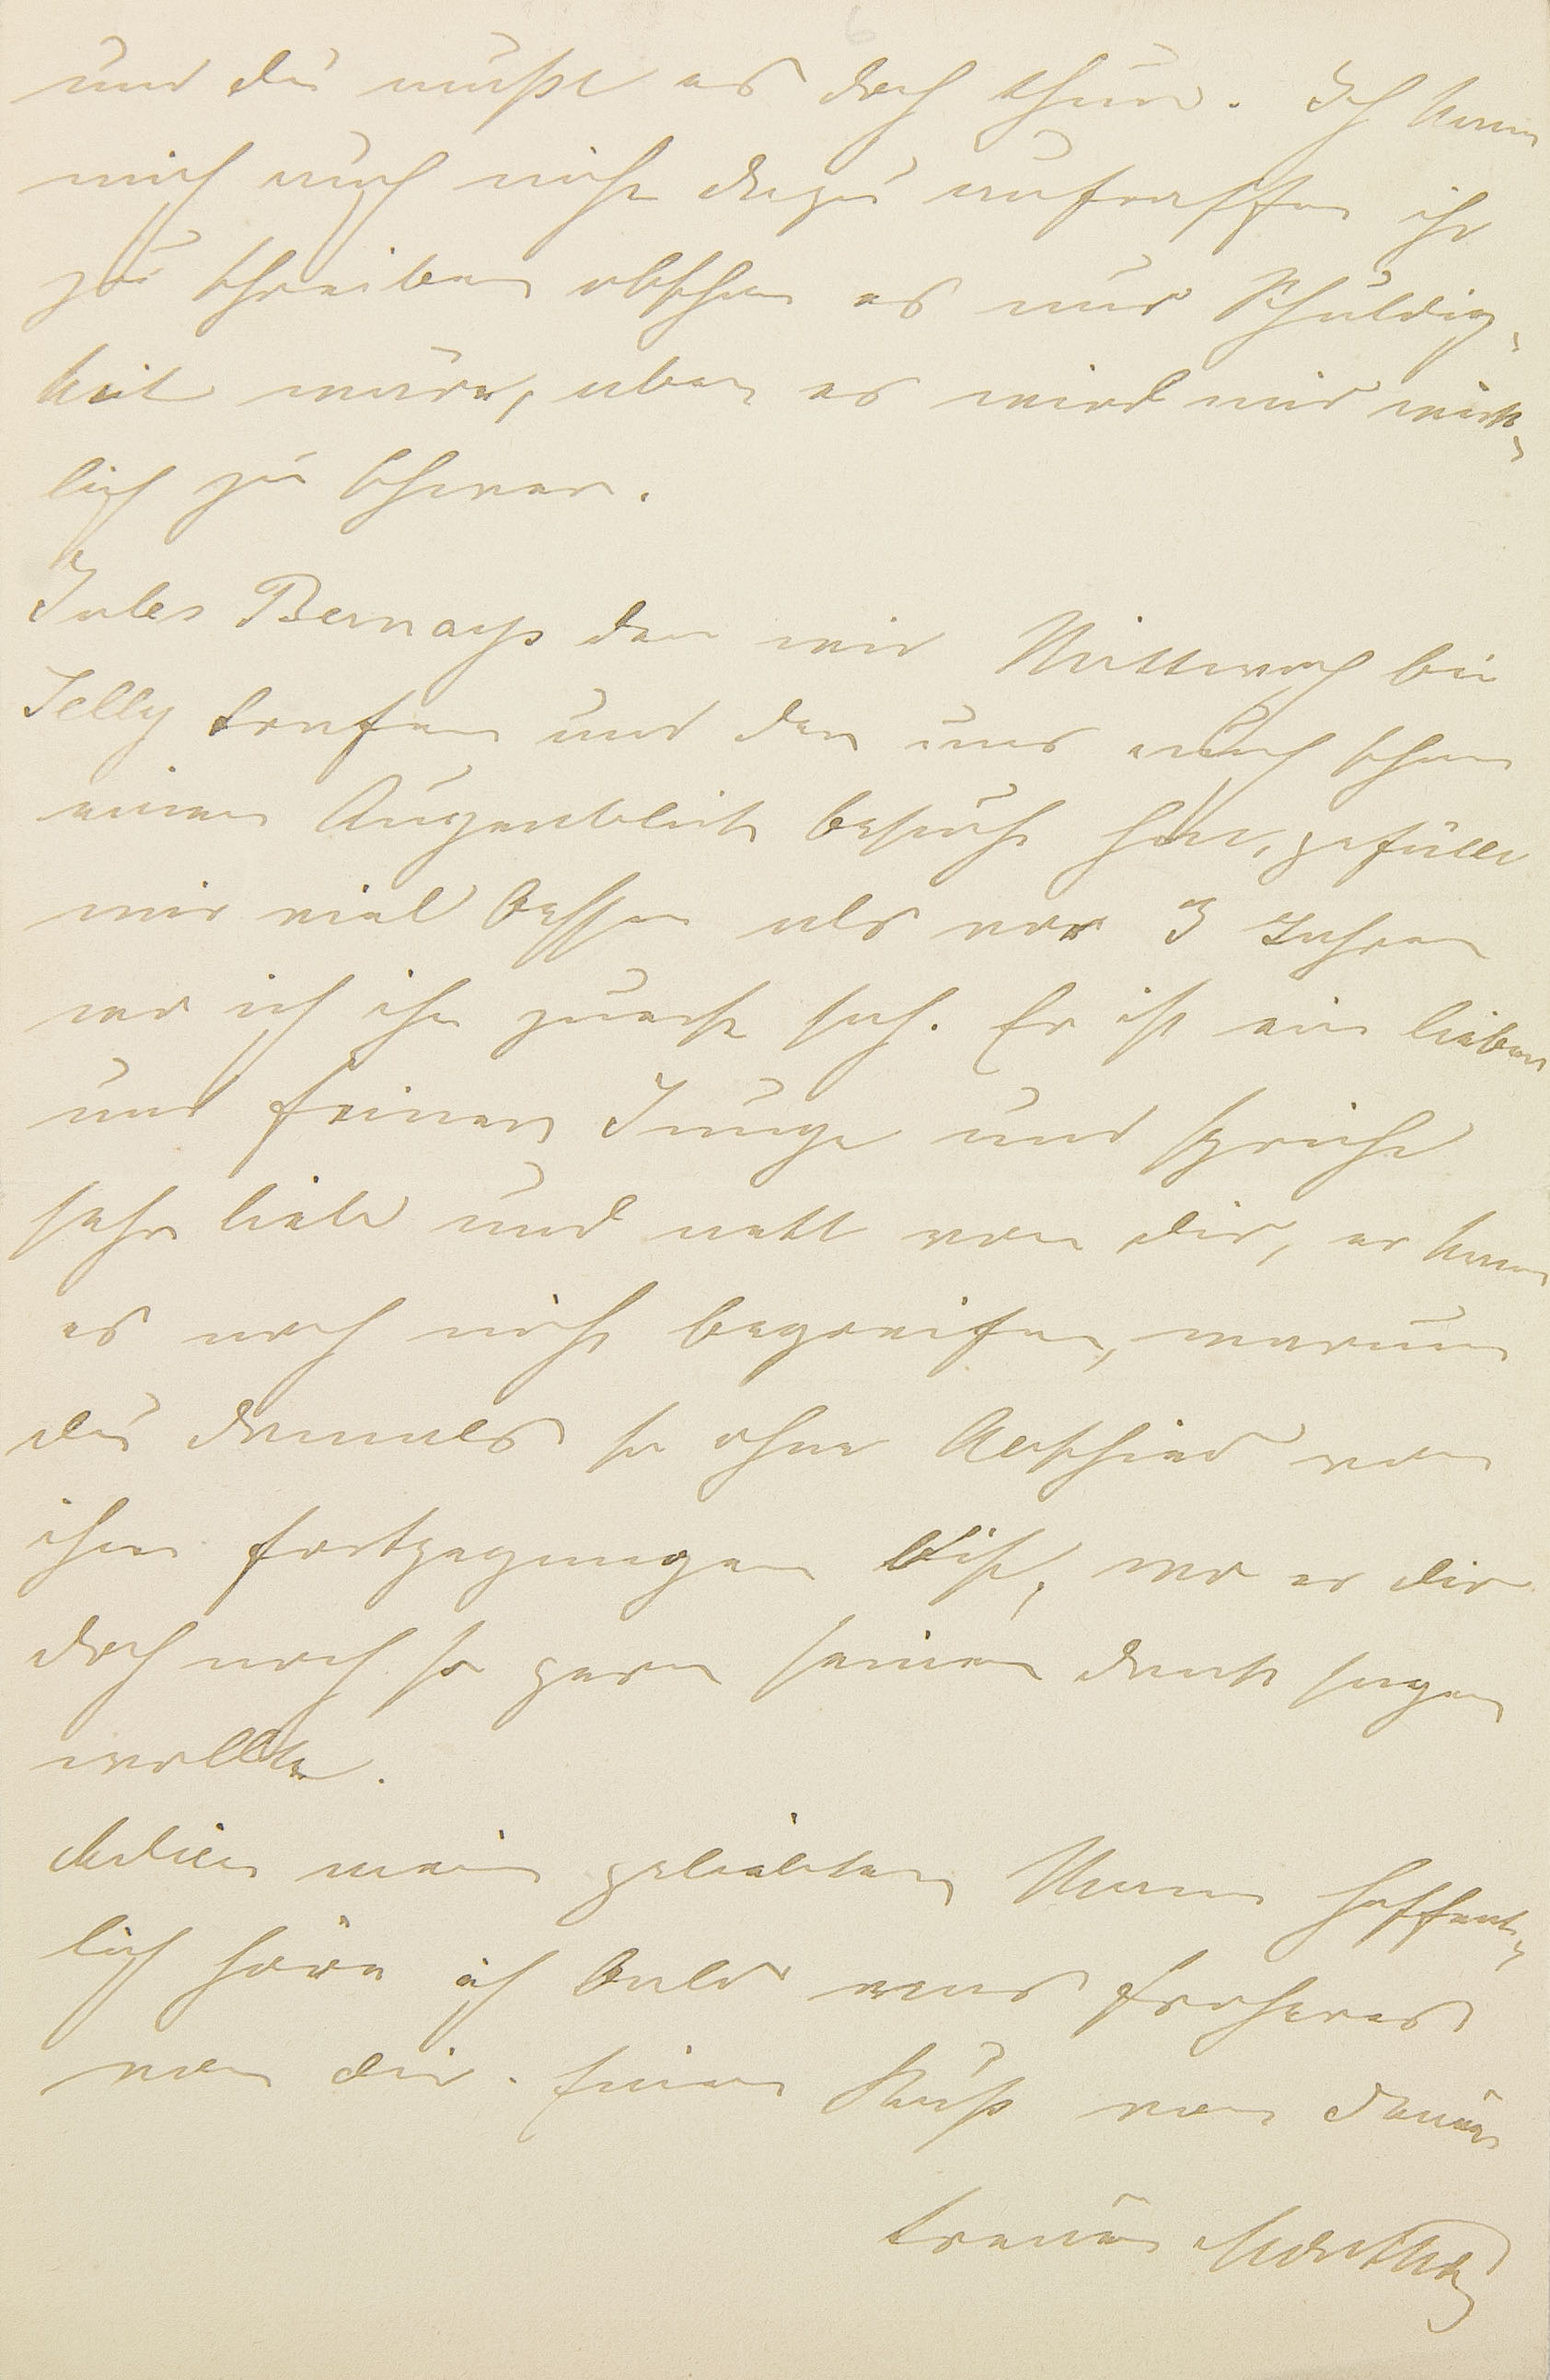 und du mußt es doch thun. Ich kann
mich auch nicht dazu aufraffen ihr
zu schreiben obschon es nur Schuldig-
keit wäre, aber es wird mir wirk-
lich zu schwer.
Jules Bernays den wir Mittwoch bei
Jelly trafen und der uns auch schon
einen Augenblick besucht hat, gefällt
mir viel besser als vor 3 Jahren
wo ich ihn zuerst sah. Er ist ein lieber
und feiner Junge und spricht
sehr lieb und nett von dir, er kann
es noch nicht begreifen, warum
du damals so ohne Abschied von
ihm fortgegangen bist, wo er dir
doch noch so gern seinen Dank sagen
wollte.
Adieu mein geliebter Mann hoffent-
lich höre ich bald was froheres
von dir. Einen Kuß von deiner
treuen Martha